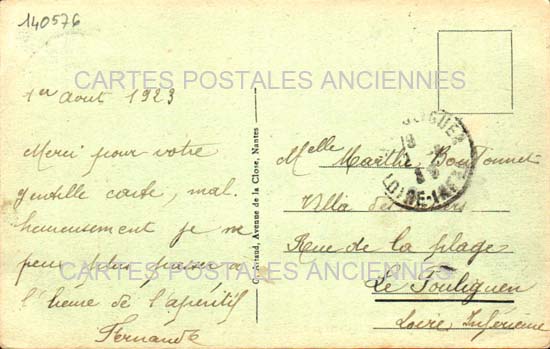 140576
CARTES POSTALES ANCIENNES
1er Août 1923
Merci pour votre
gentille carte, mal-
heureusement je ne
peux plus passer à
l'heure de l'apéritif
Fernande
Artaud, Avenue de la Close, Nantes
LOIRE-INFRE
Melle Marthe Boutonnet
Villa des
Rue de la plage
Le Pouliguen
Loire Inférieure
CARTES POSTALES ANCIENNES